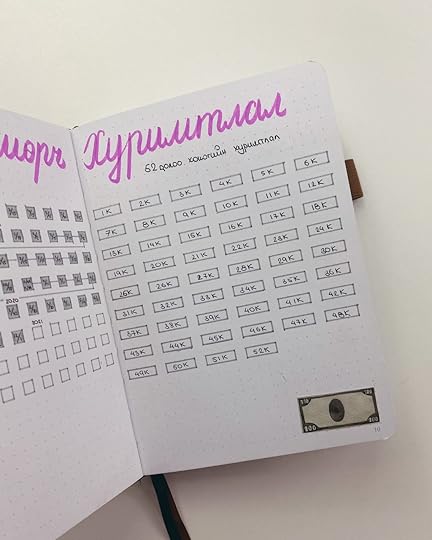 Хуримтлал
52 долоо хоногийн хуримтлал
1K 2K 3K 4K 5K 6K
7K 8K 9K 10K 11K 12K
13K 14K 15K 16K 17K 18K
19K 20K 21K 22K 23K 24K
25K 26K 27K 28K 29K 30K
31K 32K 33K 34K 35K 36K
37K 38K 39K 40K 41K 42K
43K 44K 45K 46K 47K 48K
49K 50K 51K 52K
2020
2021